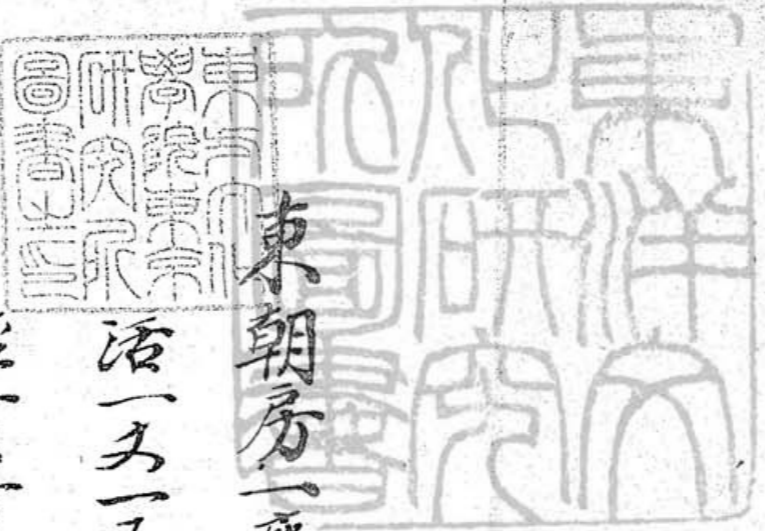 東洋文
化研究
所圖書
東方文化
學院東京
研究所
圖書之印
東朝房一
活一丈一